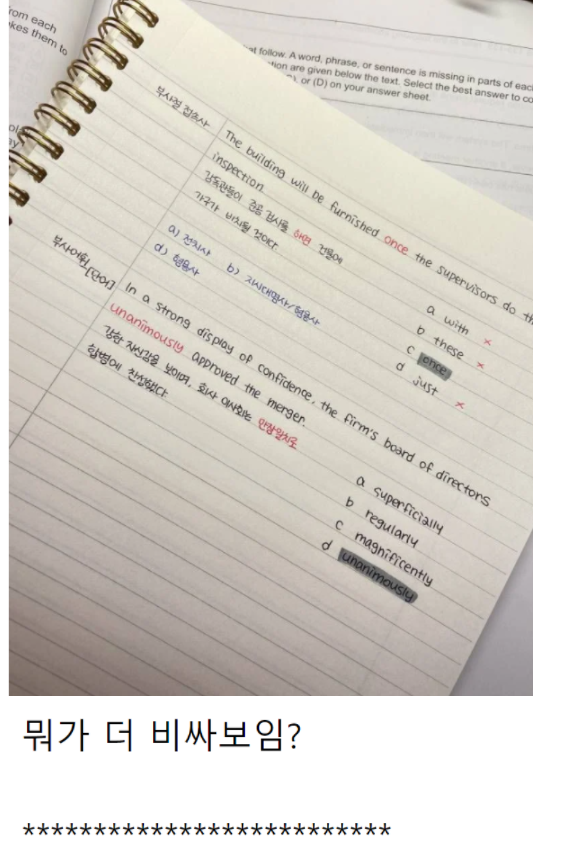 rom each
kes them to
at follow. A word, phrase, or sentence is missing in parts of eac
tion are given below the text. Select the best answer to co
, or (D) on your answer sheet.
부사절 접속사
The building will be furnished once the supervisors do th
inspection.
감독관들이 검사를 하면 건물에
가구가 비치될 것이다.
a with ×
b these ×
c once
d just ×
a) 전치사 b) 지시대명사/형용사
d) 형용사
부사어휘 [단어]
In a strong display of confidence, the firm's board of directors
unanimously approved the merger.
강한 자신감을 보이며, 회사 이사회는 만장일치로
합병에 찬성했다.
a superficially
b regularly
c magnificently
d unanimously
뭐가 더 비싸보임?
**************************